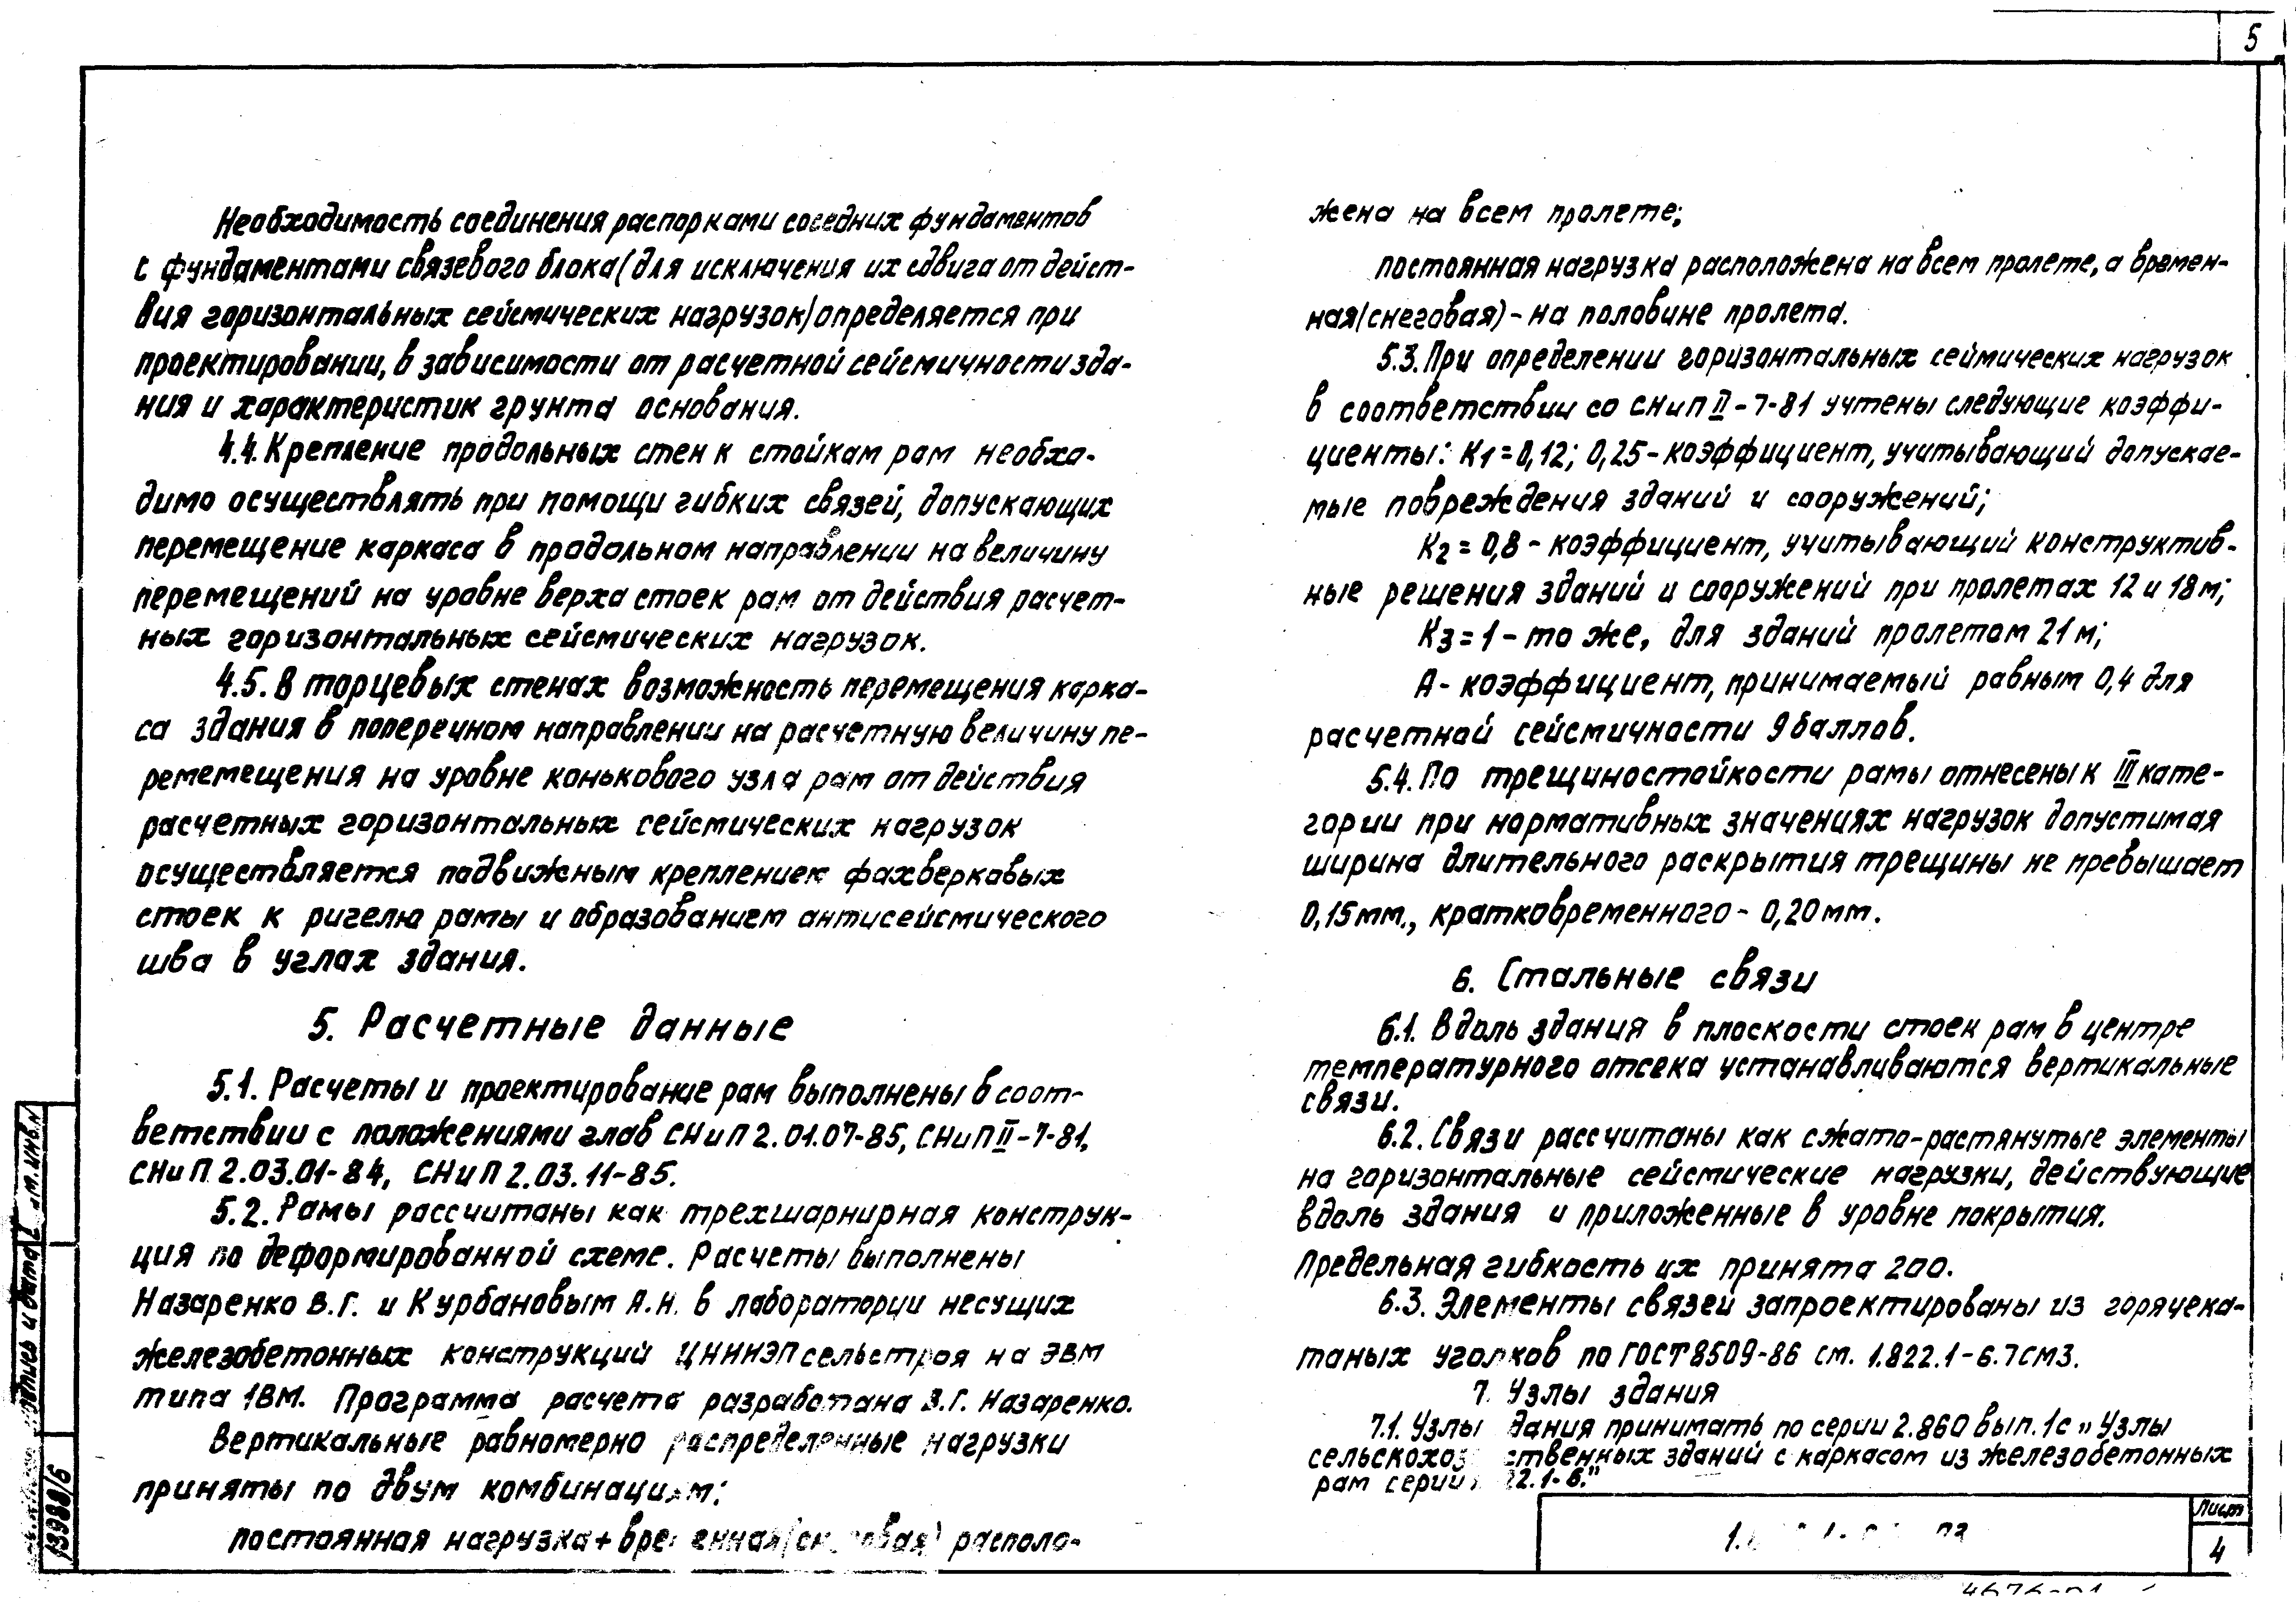 5
Необходимость соединения распорками соседних фундаментов
с фундаментами связевого блока (для исключения их сдвига от дейст-
вия горизонтальных сейсмических нагрузок) определяется при
проектировании, в зависимости от расчетной сейсмичности зда-
ния и характеристик грунта основания.
4.4. Крепление продольных стен к стойкам рам необхо-
димо осуществлять при помощи гибких связей, допускающих
перемещение каркаса в продольном направлении на величину
перемещений на уровне верха стоек рам от действия расчет-
ных горизонтальных сейсмических нагрузок.
4.5. В торцевых стенах возможность перемещения карка-
са здания в поперечном направлении на расчетную величину пе-
ремемещения на уровне конькового узла рам от действия
расчетных горизонтальных сейсмических нагрузок
осуществляется подвижным креплением фахверковых
стоек к ригелю рамы и образованием антисейсмического
шва в углах здания.
5. Расчетные данные
5.1. Расчеты и проектирование рам выполнены в соот-
ветствии с положениями глав СНиП 2.01.07-85, СНиП II-7-81,
СНиП 2.03.01-84, СНиП 2.03.11-85.
5.2. Рамы рассчитаны как трехшарнирная конструк-
ция по деформированной схеме. Расчеты выполнены
Назаренко В.Г. и Курбановым А.Н. в лаборатории несущих
железобетонных конструкций ЦНИИЭПсельстроя на ЭВМ
типа 1ВМ. Программа расчета разработана В.Г. Назаренко.
Вертикальные равномерно распределенные нагрузки
приняты по двум комбинациям:
постоянная нагрузка + располо-
жена на всем пролете;
постоянная нагрузка расположена на всем пролете, а времен-
ная (снеговая) - на половине пролета.
5.3. При определении горизонтальных сеймических нагрузок
в соответствии со СНиП II-7-81 учтены следующие коэффи-
циенты: К1=0,12; 0,25 - коэффициент, учитывающий допускае-
мые повреждения зданий и сооружений;
К2=0,8 - коэффициент, учитывающий конструктив-
ные решения зданий и сооружений при пролетах 12 и 18 м;
К3=1 - то же, для зданий пролетом 21 м;
А - коэффициент, принимаемый равным 0,4 для
расчетной сейсмичности 9 баллов.
5.4. По трещиностойкости рамы отнесены к III кате-
гории при нормативных значениях нагрузок допустимая
ширина длительного раскрытия трещины не превышает
0,15мм., кратковременного - 0,20мм.
6. Стальные связи
6.1. Вдоль здания в плоскости стоек рам в центре
температурного отсека устанавливаются вертикальные
связи.
6.2. Связи рассчитаны как сжато-растянутые элементы
на горизонтальные сейсмические нагрузки, действующие
вдоль здания и приложенные в уровне покрытия.
Предельная гибкость их принята 200.
6.3. Элементы связей запроектированы из горячека-
таных уголков по ГОСТ 8509-86 см. 1.822.1-6.7СМ3.
7. Узлы здания
7.1. Узлы здания принимать по серии 2.860 вып. 1с „Узлы
сельскохозяйственных зданий с каркасом из железобетонных
рам серии
Лист
4
13988/6